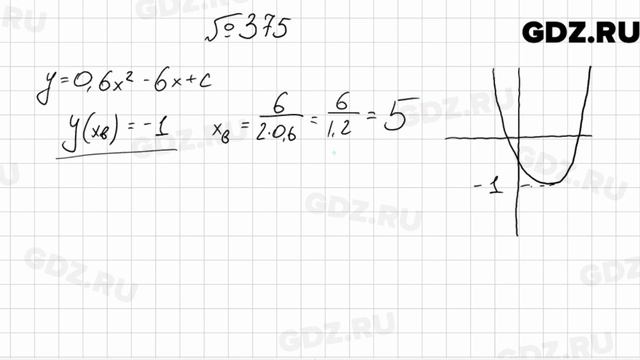 №375
GDZ.RU
y=0,6x²-6x+c
y(xв)=-1
xв=6/(2·0,6)=6/1,2=5
-1
GDZ.RU
GDZ.RU
GDZ.RU
GDZ.RU
GDZ.RU
GDZ.RU